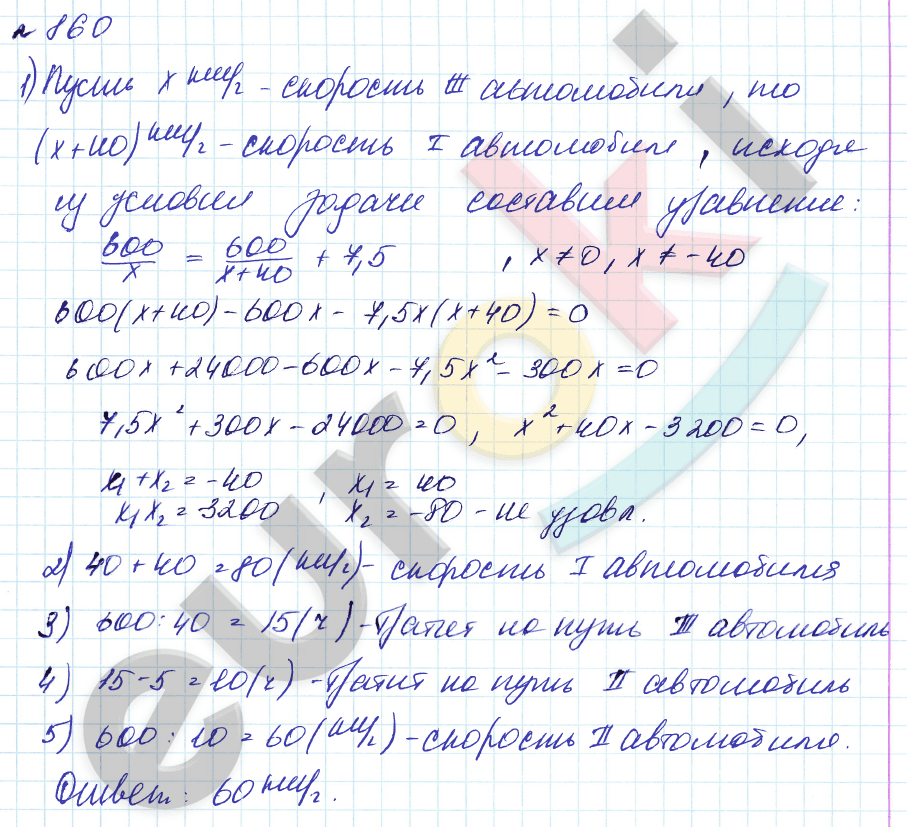 № 860
1) Пусть x км/г - скорость III автомобиля, то
(x+40) км/г - скорость I автомобиля, исходя
из условия задачи составим уравнение:
600/x = 600/(x+40) + 7,5 , x ≠ 0, x ≠ -40
600(x+40) - 600x - 7,5x(x+40) = 0
600x + 24000 - 600x - 7,5x² - 300x = 0
7,5x² + 300x - 24000 = 0, x² + 40x - 3200 = 0,
x₁ + x₂ = -40 , x₁ = 40
x₁x₂ = -3200 x₂ = -80 - не удовл.
2) 40 + 40 = 80 (км/г) - скорость I автомобиля
3) 600 : 40 = 15 (г) - тратит на путь III автомобиль
4) 15 - 5 = 10 (г) - тратит на путь II автомобиль
5) 600 : 10 = 60 (км/г) - скорость II автомобиля.
Ответ: 60 км/г.
euroki